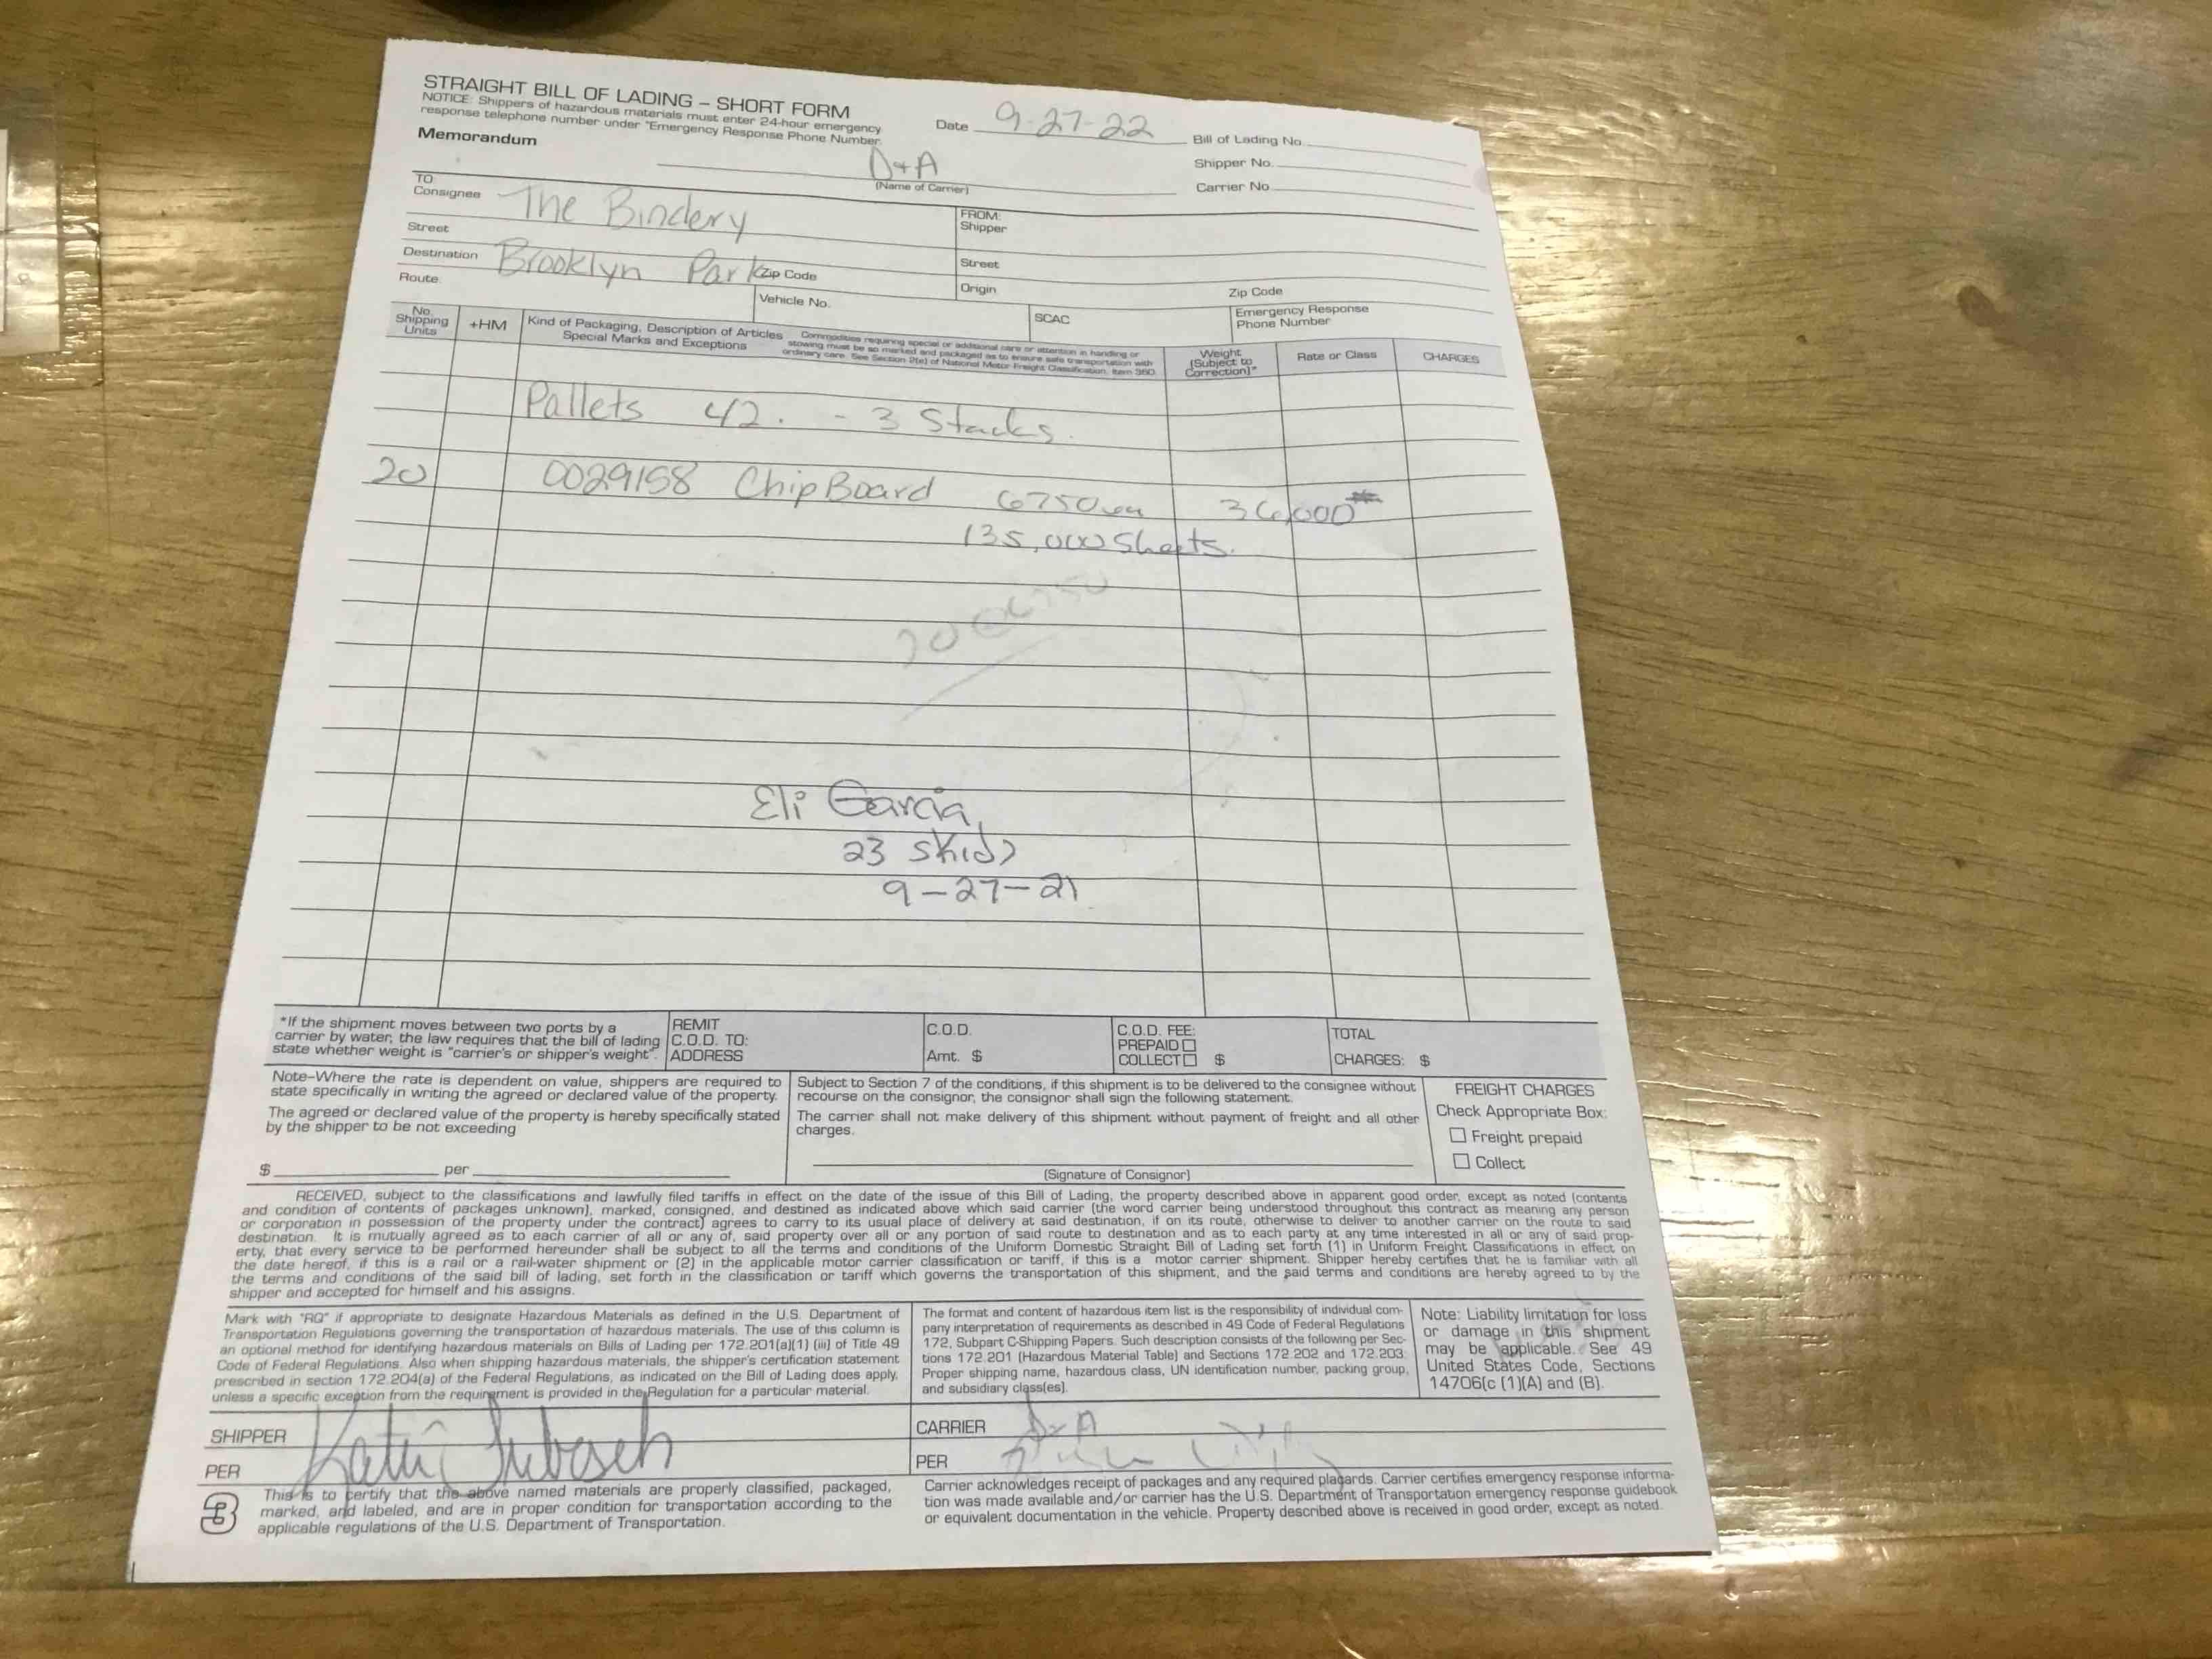 STRAIGHT BILL OF LADING – SHORT FORM
NOTICE: Shippers of hazardous materials must enter 24-hour emergency
response telephone number under "Emergency Response Phone Number.
Memorandum
Date 9-27-22
Bill of Lading No.
Shipper No.
Carrier No.
D+A
(Name of Carrier)
TO:
Consignee The Bindery
Street
Destination Brooklyn Park Zip Code
Route:
FROM:
Shipper
Street
Origin Zip Code
Vehicle No.
SCAC
Emergency Response
Phone Number
No.
Shipping
Units
+HM
Kind of Packaging, Description of Articles
Special Marks and Exceptions
Commodities requiring special or additional care or attention in handling or
stowing must be so marked and packaged as to ensure safe transportation with
ordinary care. See Section 2(e) of National Motor Freight Classification, Item 360.
Weight
(Subject to
Correction)*
Rate or Class
CHARGES
Pallets 42. - 3 Stacks.
20 0029158 ChipBoard 6750 ea 36,000#
135,000 Sheets.
20 @ 6750
Eli Garcia
23 skids
9-27-21
*If the shipment moves between two ports by a
carrier by water, the law requires that the bill of lading
state whether weight is "carrier's or shipper's weight".
REMIT
C.O.D. TO:
ADDRESS
C.O.D.
Amt. $
C.O.D. FEE:
PREPAID
COLLECT $
TOTAL
CHARGES: $
Note–Where the rate is dependent on value, shippers are required to
state specifically in writing the agreed or declared value of the property.
The agreed or declared value of the property is hereby specifically stated
by the shipper to be not exceeding
$ per
Subject to Section 7 of the conditions, if this shipment is to be delivered to the consignee without
recourse on the consignor, the consignor shall sign the following statement.
The carrier shall not make delivery of this shipment without payment of freight and all other
charges.
(Signature of Consignor)
FREIGHT CHARGES
Check Appropriate Box:
Freight prepaid
Collect
RECEIVED, subject to the classifications and lawfully filed tariffs in effect on the date of the issue of this Bill of Lading, the property described above in apparent good order, except as noted (contents
and condition of contents of packages unknown), marked, consigned, and destined as indicated above which said carrier (the word carrier being understood throughout this contract as meaning any person
or corporation in possession of the property under the contract) agrees to carry to its usual place of delivery at said destination, if on its route, otherwise to deliver to another carrier on the route to said
destination. It is mutually agreed as to each carrier of all or any of, said property over all or any portion of said route to destination and as to each party at any time interested in all or any of said prop-
erty, that every service to be performed hereunder shall be subject to all the terms and conditions of the Uniform Domestic Straight Bill of Lading set forth (1) in Uniform Freight Classifications in effect on
the date hereof, if this is a rail or a rail-water shipment or (2) in the applicable motor carrier classification or tariff, if this is a motor carrier shipment. Shipper hereby certifies that he is familiar with all
the terms and conditions of the said bill of lading, set forth in the classification or tariff which governs the transportation of this shipment, and the said terms and conditions are hereby agreed to by the
shipper and accepted for himself and his assigns.
Mark with "RQ" if appropriate to designate Hazardous Materials as defined in the U.S. Department of
Transportation Regulations governing the transportation of hazardous materials. The use of this column is
an optional method for identifying hazardous materials on Bills of Lading per 172.201(a)(1) (iii) of Title 49
Code of Federal Regulations. Also when shipping hazardous materials, the shipper's certification statement
prescribed in section 172.204(a) of the Federal Regulations, as indicated on the Bill of Lading does apply,
unless a specific exception from the requirement is provided in the Regulation for a particular material.
The format and content of hazardous item list is the responsibility of individual com-
pany interpretation of requirements as described in 49 Code of Federal Regulations
172, Subpart C-Shipping Papers. Such description consists of the following per Sec-
tions 172.201 (Hazardous Material Table) and Sections 172.202 and 172.203:
Proper shipping name, hazardous class, UN identification number, packing group,
and subsidiary class(es).
Note: Liability limitation for loss
or damage in this shipment
may be applicable. See 49
United States Code, Sections
14706(c (1)(A) and (B).
SHIPPER
PER
CARRIER D+A
PER
3
This is to certify that the above named materials are properly classified, packaged,
marked, and labeled, and are in proper condition for transportation according to the
applicable regulations of the U.S. Department of Transportation.
Carrier acknowledges receipt of packages and any required plagards. Carrier certifies emergency response informa-
tion was made available and/or carrier has the U.S. Department of Transportation emergency response guidebook
or equivalent documentation in the vehicle. Property described above is received in good order, except as noted.